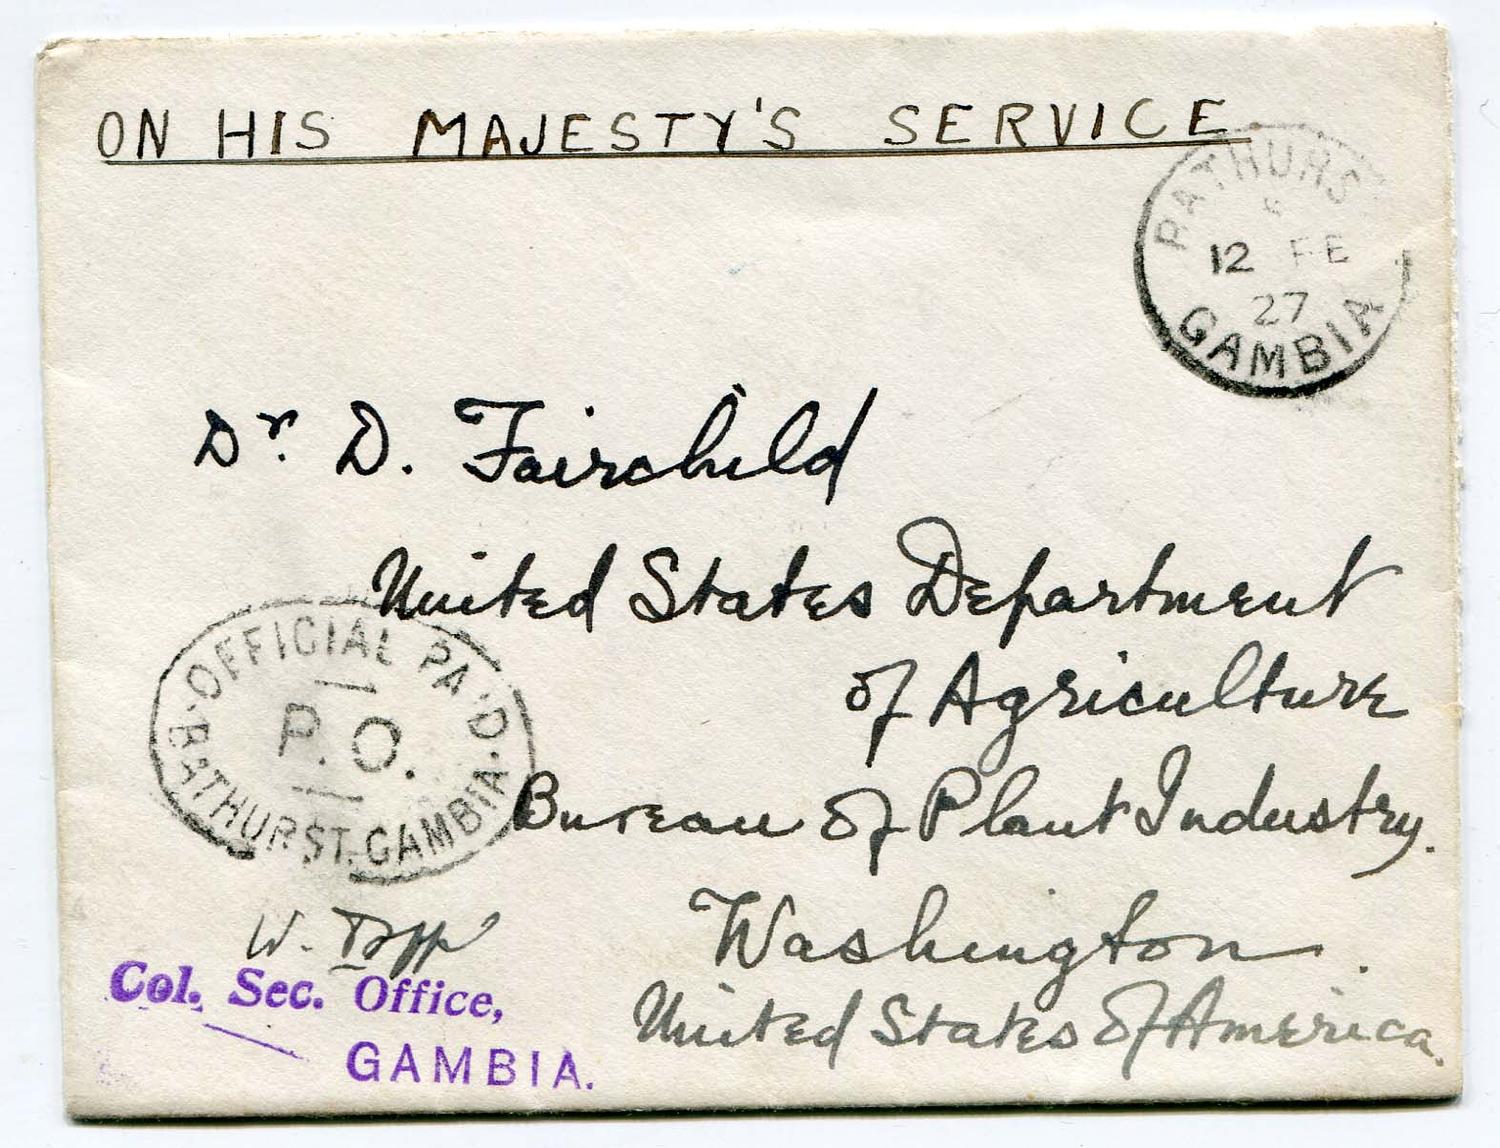 ON HIS MAJESTY'S SERVICE
BATHURST
12 FE
27
GAMBIA
Dr. D. Fairchild
United States Department
of Agriculture
Bureau of Plant Industry.
Washington.
United States of America.
OFFICIAL PA'D.
P.O.
BATHURST. GAMBIA
W.
Col. Sec. Office,
GAMBIA.